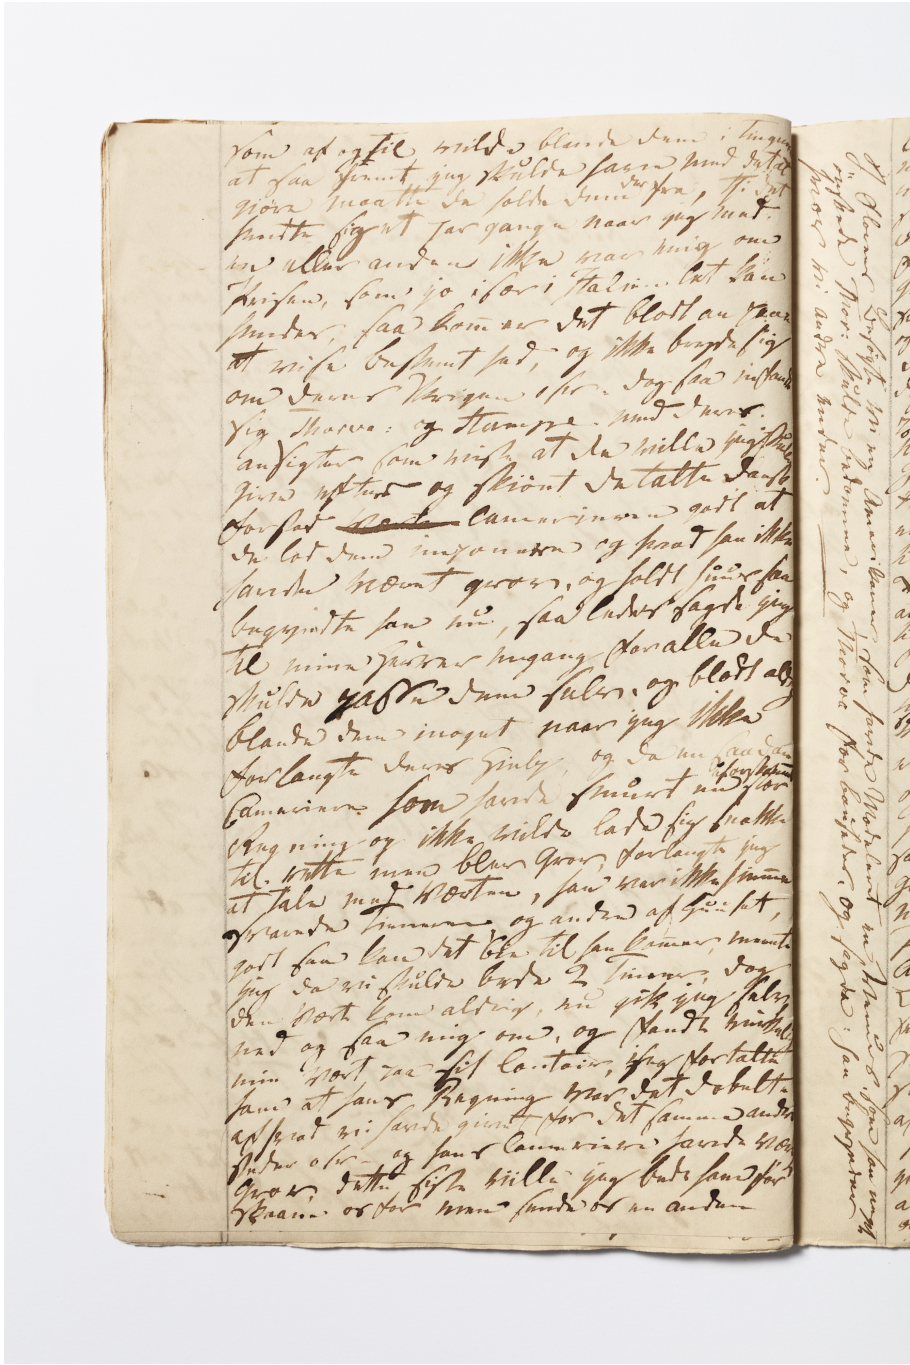 som af og til vilde blande dem i tingene
at saa snart jeg skulde have med det at
giøre maatte de holde dem derfra, thi det
hendte sig et par gange naar jeg med
en eller anden ikke var enig om
Prisen, som jo især i Italien let kan
hendes, saa kommer det blodt an paa
at vise bestemt hed, og ikke bryde sig
om deres Skrigen osv. dog saa
sig Thorv: og Stampe med deres
ansigter som viste at de vilde jeg skulde
give efter og skiønt de talte Dansk
forstod Camerieren godt at
de lod dem imponere og hvad han ikke
havde været grov, og holdt
begyndte han nu, saaledes sagde jeg
til mine Herrer engang for alle de
skulde passe dem selv, og blodt aldrig
blande dem i noget naar jeg ikke
forlangte deres Hielp, og da en saadan
Cameriere som havde smurt en stor
Regning og ikke vilde lade sig snakke
til rette men blev grov, forlangte jeg
at tale med Værten, han var ikke hiemme
svarede Tieneren og andre af Huuset,
godt saa kan det bie til han kommer, meente
jeg da vi skulde bede 2 Timer, dog
den Vært kom aldrig, nu gik jeg selv
ned og saa mig om, og fandt
min Vært paa sit Contoir, jeg fortalte
ham at hans Regning var det dobelte
af hvad vi havde givet for det samme andre
steder osv - og hans Cameriere havde været
grov, dette sidste ville jeg bede ham før
skaane os for men sende os en anden
I Florens besøgte vi en Amerikaner som havde Modeleret en Venus, som han
ønskede Thor: skulde bedømme, og Thorv: forbausedes, og sagde: han begynder
hvor vi andre ender.